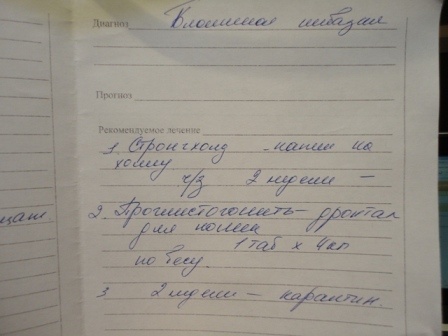 Диагноз Блошиная инвазия
Прогноз
Рекомендуемое лечение
1. Стронгхолд - капли на
холку
ч/з 2 недели -
2. Проглистогонить - дронтал
для кошек
1 таб х 4 кг
по весу.
3. 2 недели - карантин.